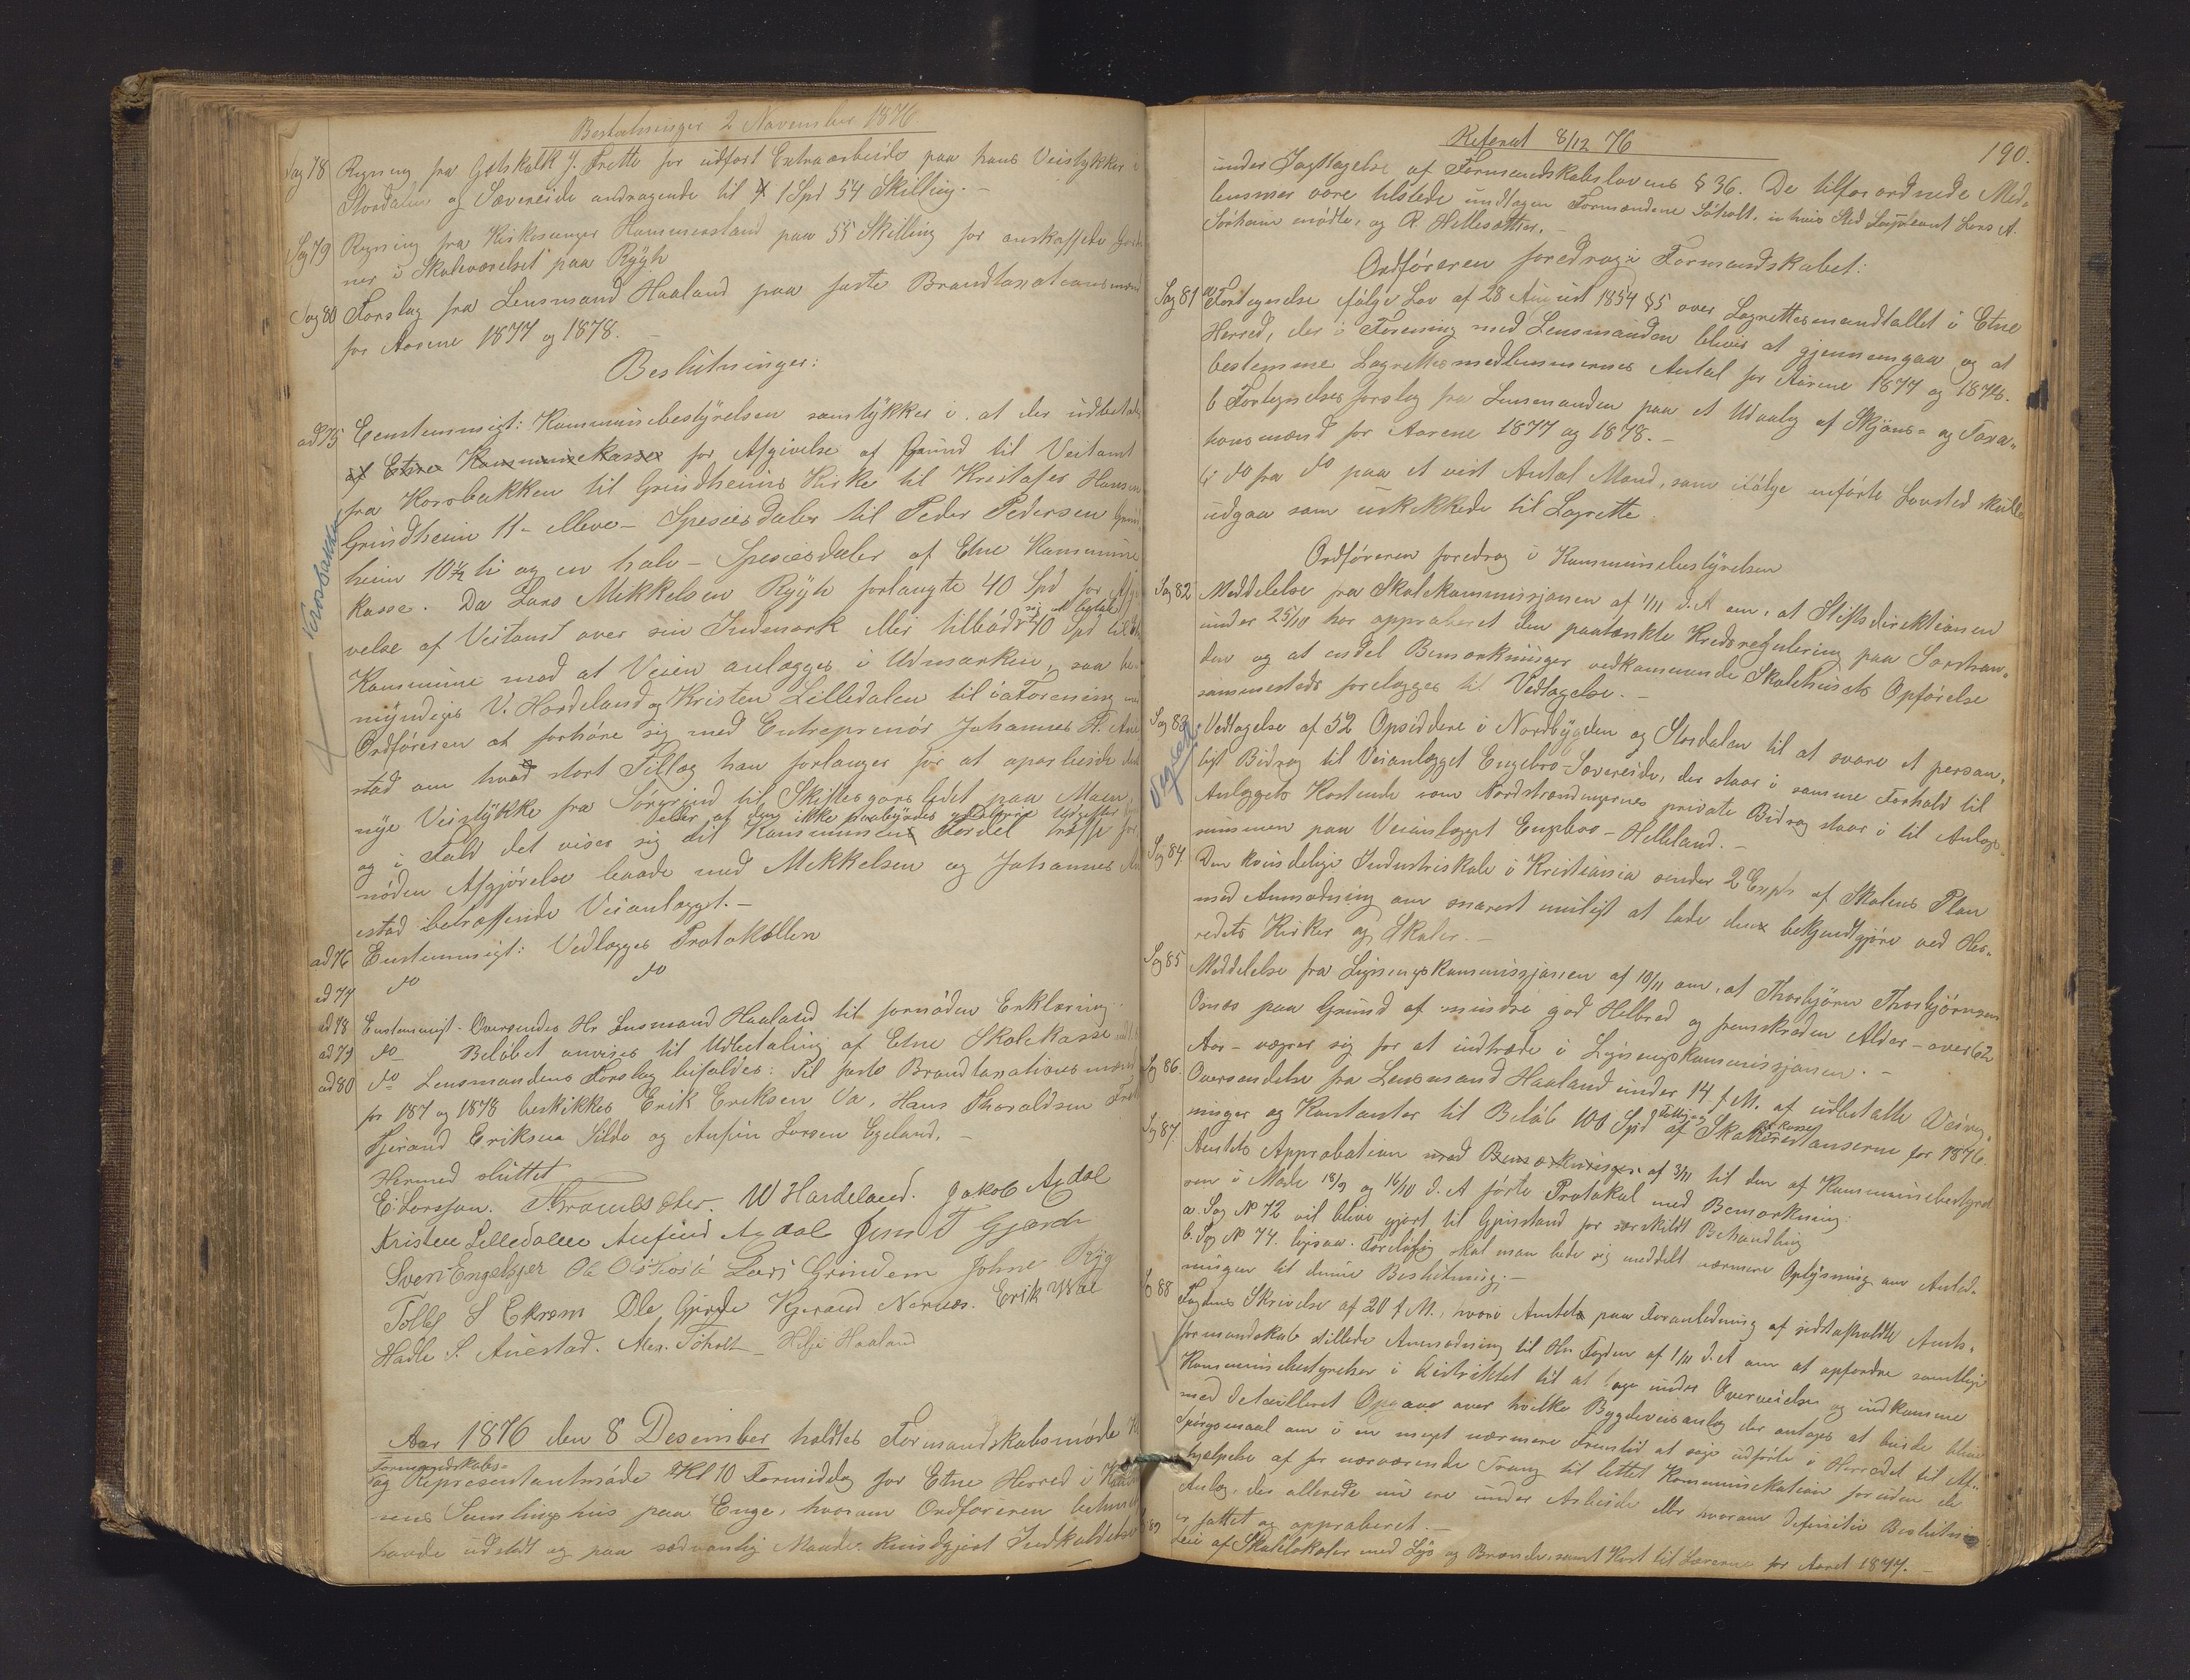 Beslutninger 2 November 1876
Sag 78 Regning fra Gotskalk J. Frette for udført Extraarbeide paa hans Veistykker i
Stordalen og Sævereide andragende til 1 Spd 54 Skilling. –
Sag 79 Regning fra Kirkesanger Hammersland paa 55 Skilling for anskaffede Gardi
ner i Skoleværelset paa Rygh
Sag 80 Forslag fra Lensmand Haaland paa faste Brandtaxationsmænd
for Aarene 1877 og 1878. –
Beslutninger:
ad 75 Eenstemmigt: Kommunebestyrelsen samtykker i, at der udbetales
af Etne Kommunekasse for Afgivelse af Grund til Veitomt
fra Korsbakken til Grindheims Kirke til Kristofer Hansen
Grindheim 11 – elleve – Speciesdaler til Peder Pedersen Grind
heim 10½ ti og en halv – Speciesdaler af Etne Kommune
kasse. Da Lars Mikkelsen Rygh forlangte 40 Spd for Afgi
velse af Veitomt over sin Indmark eller tilbød sig at betale 40 Spd til
Kommune mod at Veien anlægges i Udmarken, saa be
myndiges V. Hardeland og Kristen Lilledalen til i Forening med
Ordføreren at forhøre sig med Entreprenør Johannes H. Aue
stad om hvad stort Tillæg han forlanger for at oparbeide det
nye Veistykke fra Sørgrind til Skiftesgarsledet paa Maen,
og i Fald det viser sig at Kommunen Fordel træffe for
nøden Afgjørelse baade med Mekkelsen og Johannes Au
estad betræffende Veianlægget. –
Korsbakka
ad 76 Eenstemmigt: Vedlægges Protokollen
ad 77 do do
ad 78 Enstemmigt – Oversendes Hr Lensmand Haaland til fornøden Erklæring.
ad 79 do – Beløbet anvises til Udbetaling af Etne Skolekasse
ad 80 do Lensmandens Forslag bifaldes: Til faste Brandtaxationsmænd
for 187 og 1878 beskikkes Erik Eriksen Va, Hans Thoraldsen Frette
Hjerand Eriksen Silde og Anfin Larsen Egeland. –
Hermed sluttet
E. Larsson. W Hardeland. Jakob Axdal
Kristen Lilledalen Anfind Axdal Jens T Gjærde
Sven Engelsgjer Lars Grindem Johne Ryg
Tollef S Ekrem Ole Gjerde Kjerand Nernæs. Erik Wae
Hadle S. Auestad. Alex. Töholt – Helje Haaland
Aar 1876 den 8 Desember holdtes Formandskabsmøde
Formandskabs=
og Representantmøde Kl 10 Formiddag for Etne Herred i
nens Samlingshus paa Enge, hvorom Ordføreren betimelig
havde udstedt og paa sædvanlig Maade kundgjort Indkaldelse
Referat 8/12 76
190.
under Iagttagelse af Formandskabslovens § 36. De tilforordnede Med„
lemmer vare tilstede undtagen Formændene Tóholt, in hvis Sted Suppleant Lars A.
Sørheim mødte, og R. Hellesætter. –
Ordføreren foredrog i Formandskabet:
Sag 81 a Fortegnelse følge Lov af 28 August 1854 §5 over Lagrettesmandtallet i Etne
Herred, der i Forening med Lensmanden bliver at gjennemgaa og at
bestemme Lagrettesmedlemmernes Antal for Aarene 1877 og 1878.
b Fortegnelsesforslag fra Lensmanden paa et Udvalg af Skjøns- og Taxa„
tionsmænd for Aarene 1877 og 1878. –
c do fra do paa et vist Antal Mænd, som ifølge anførte Lovsted skulle
udgaa som uskikkede til Lagrette
Ordføreren foredrog i Kommunebestyrelsen
Sag 82 Meddelelse fra Skolekommissjonen af 1/11 d. A om, at Stiftsdirektionen
under 25/10 har approberet den paatænkte Kredsregulering paa Sørstran„
den og at endel Bemærkninger vedkommende Skolehusets Opførelse
sammesteds forelægges til Vedtagelse. –
Sag 83 Vedtagelse af 52 Opsiddere i Nordbygden og Stordalen til at svare et person„
ligt Bidrag til Veianlægget Engebro–Sævereide, der staar i samme Forhold til
Anlæggets Kostende som Nordstrandingernes private Bidrag staar i til Anlægs„
summen paa Veianlægget Engebro – Helleland. –
Sag 84 Den kvindelige Industriskole i Kristiania sender 2 Expl. af Skolens Plan
med Anmodning om snarest muligt at lade den bekjendtgjøre ved Her„
redets Kirker og Skoler. –
Sag 85 Meddelelse fra Ligningskommissjonen af 10/11 om, at Thorbjørn Thorbjørnsen
Osnes paa Grund af mindre god Helbred og fremskreden Alder – over 62
Aar – vægrer sig for at indtræde i Ligningskommissjonen. –
Sag 86. Oversendelse fra Lensmand Haaland under 14 f. M. af udbetalte Veireg„
ninger og Kontanter til Beløb 100 Spd af Skatterestanserne for 1876.
Sag 87. Amtets Approbation med Bemærkninger af 3/11 til den af Kommunebestyrel
sen i Møde 18/9 og 16/10 d. A førte Protokol med Bemærkning:
a. Sag No 72 vil blive gjort til Gjenstand for særskildt Behandling
b. Sag No 74. ligesaa. Foreløbig skal man lade sig meddelt nærmere Oplysning om Anled„
ningen til denne Beslutning. –
Sag 88 Fogdens Skrivelse af 20 f. M., hvori Amtet paa Foranledning af sidstafholdte Amts„
formandskab stillede Anmodning til Hr. Fogden af 1/11 d. A om at opfordre samtlige
Kommunebestyrelser i Distriktet til at tage under Overveielse og indkomme
med detailleret Opgave over hvilke Bygdeveisanlæg der antages at burde blive
Spørgsmaal om i en meget nærmere Fremtid at søge udførte i Herredet til Af„
hjælpelse af for nærværende Trang til lettet Kommunikation foruden de
Anlæg, der allerede nu ere under Arbeide eller hvorom definitiv Beslutning
er fattet og approberet. –
89 Leie af Skolelokaler med Lys og Brænde, samt Kost til Lærerne for Aaret 1877. –